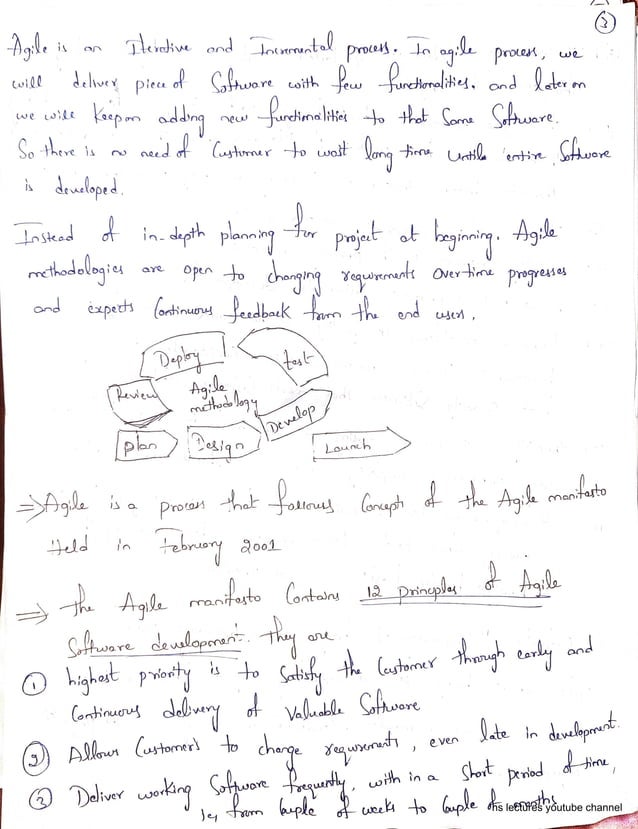 3
Agile is an Iterative and Incremental process. In agile process, we
will deliver piece of Software with few functionalities. and later on
we will keep on adding new functionalities to that Same Software.
So there is no need of Customer to wait long time untile entire Software
is developed.
Instead of in-depth planning for project at beginning. Agile
methodologies are open to changing requirements over time progresses
and expects Continuous feedback from the end users.
Deploy
test
Review
Agile
methodology
Develop
plan
Design
Launch
⇒ Agile is a process that follows Concept of the Agile manifasto
Held in February 2001
⇒ the Agile manifasto Contains 12 principles of Agile
Software development. They are
① highest priority is to Satisfy the Customer through early and
Continuous delivery of Valuable Software
② Allows Customers to change requirements, even late in development.
③ Deliver working Software frequently, with in a Short period of time,
ie, from Couple of weeks to Couple of months
hs lectures youtube channel